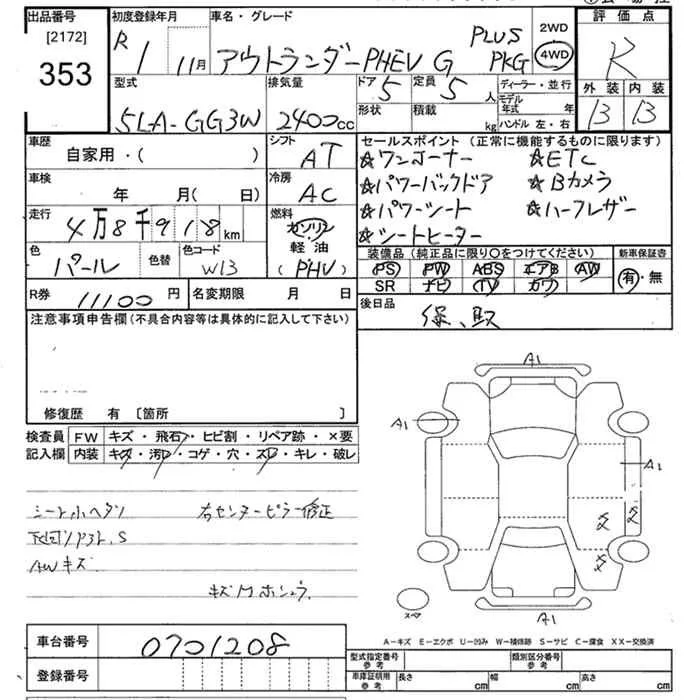 出品番号
[2172]
353
初度登録年月
R 1 11月
車名・グレード
アウトランダーPHEV G PLUS PKG
2WD
4WD
評価点
R
外装 内装
13 13
型式
5LA-GG3W
排気量
2400cc
ドア 5
定員 5人
形状
積載 kg
ディーラー・並行
モデル年式 年
ハンドル 左・右
車歴
自家用・( )
シフト
AT
車検
年 月( 日)
冷房
AC
走行
4万8千918km
燃料
ガソリン
軽油
(PHV)
色
パール
色替
色コード
W13
R券 11100円
名変期限 月 日
セールスポイント(正常に機能するものに限ります)
☆ワンオーナー ☆ETC
☆パワーバックドア ☆Bカメラ
☆パワーシート ☆ハーフレザー
☆シートヒーター
装備品(純正品に限り○をつけてください)
PS PW ABS エアB AW
SR ナビ TV カワ
新車保証書
有・無
後日品
保、取
注意事項申告欄(不具合内容等は具体的に記入して下さい)
修復歴 有 〔箇所 〕
検査員記入欄
FW キズ・飛石・ヒビ割・リペア跡・×要
内装 キズ・汚レ・コゲ・穴・スレ・キレ・破レ
シート小ヘタリ 右センターピラー修正
下回りサビ、S
AWキズ
キズ
A1
A1
A1
A1
スペア
A-キズ E-エクボ U-凹み W-補修跡 S-サビ C-腐食 XX-交換済
車台番号
0701208
登録番号
型式指定番号 参考
類別区分番号 参考
車庫証明用 参考
長さ cm 幅 cm 高さ cm